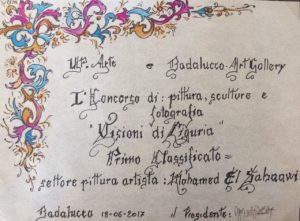 Art e Badalucco Art Gallery
I° Concorso di: pittura, sculture e
fotografia
"Visioni di Liguria"
Primo Classificato=
settore pittura artista: Mohamed El Sabaawi
Badalucco 18-06-2017 il Presidente: